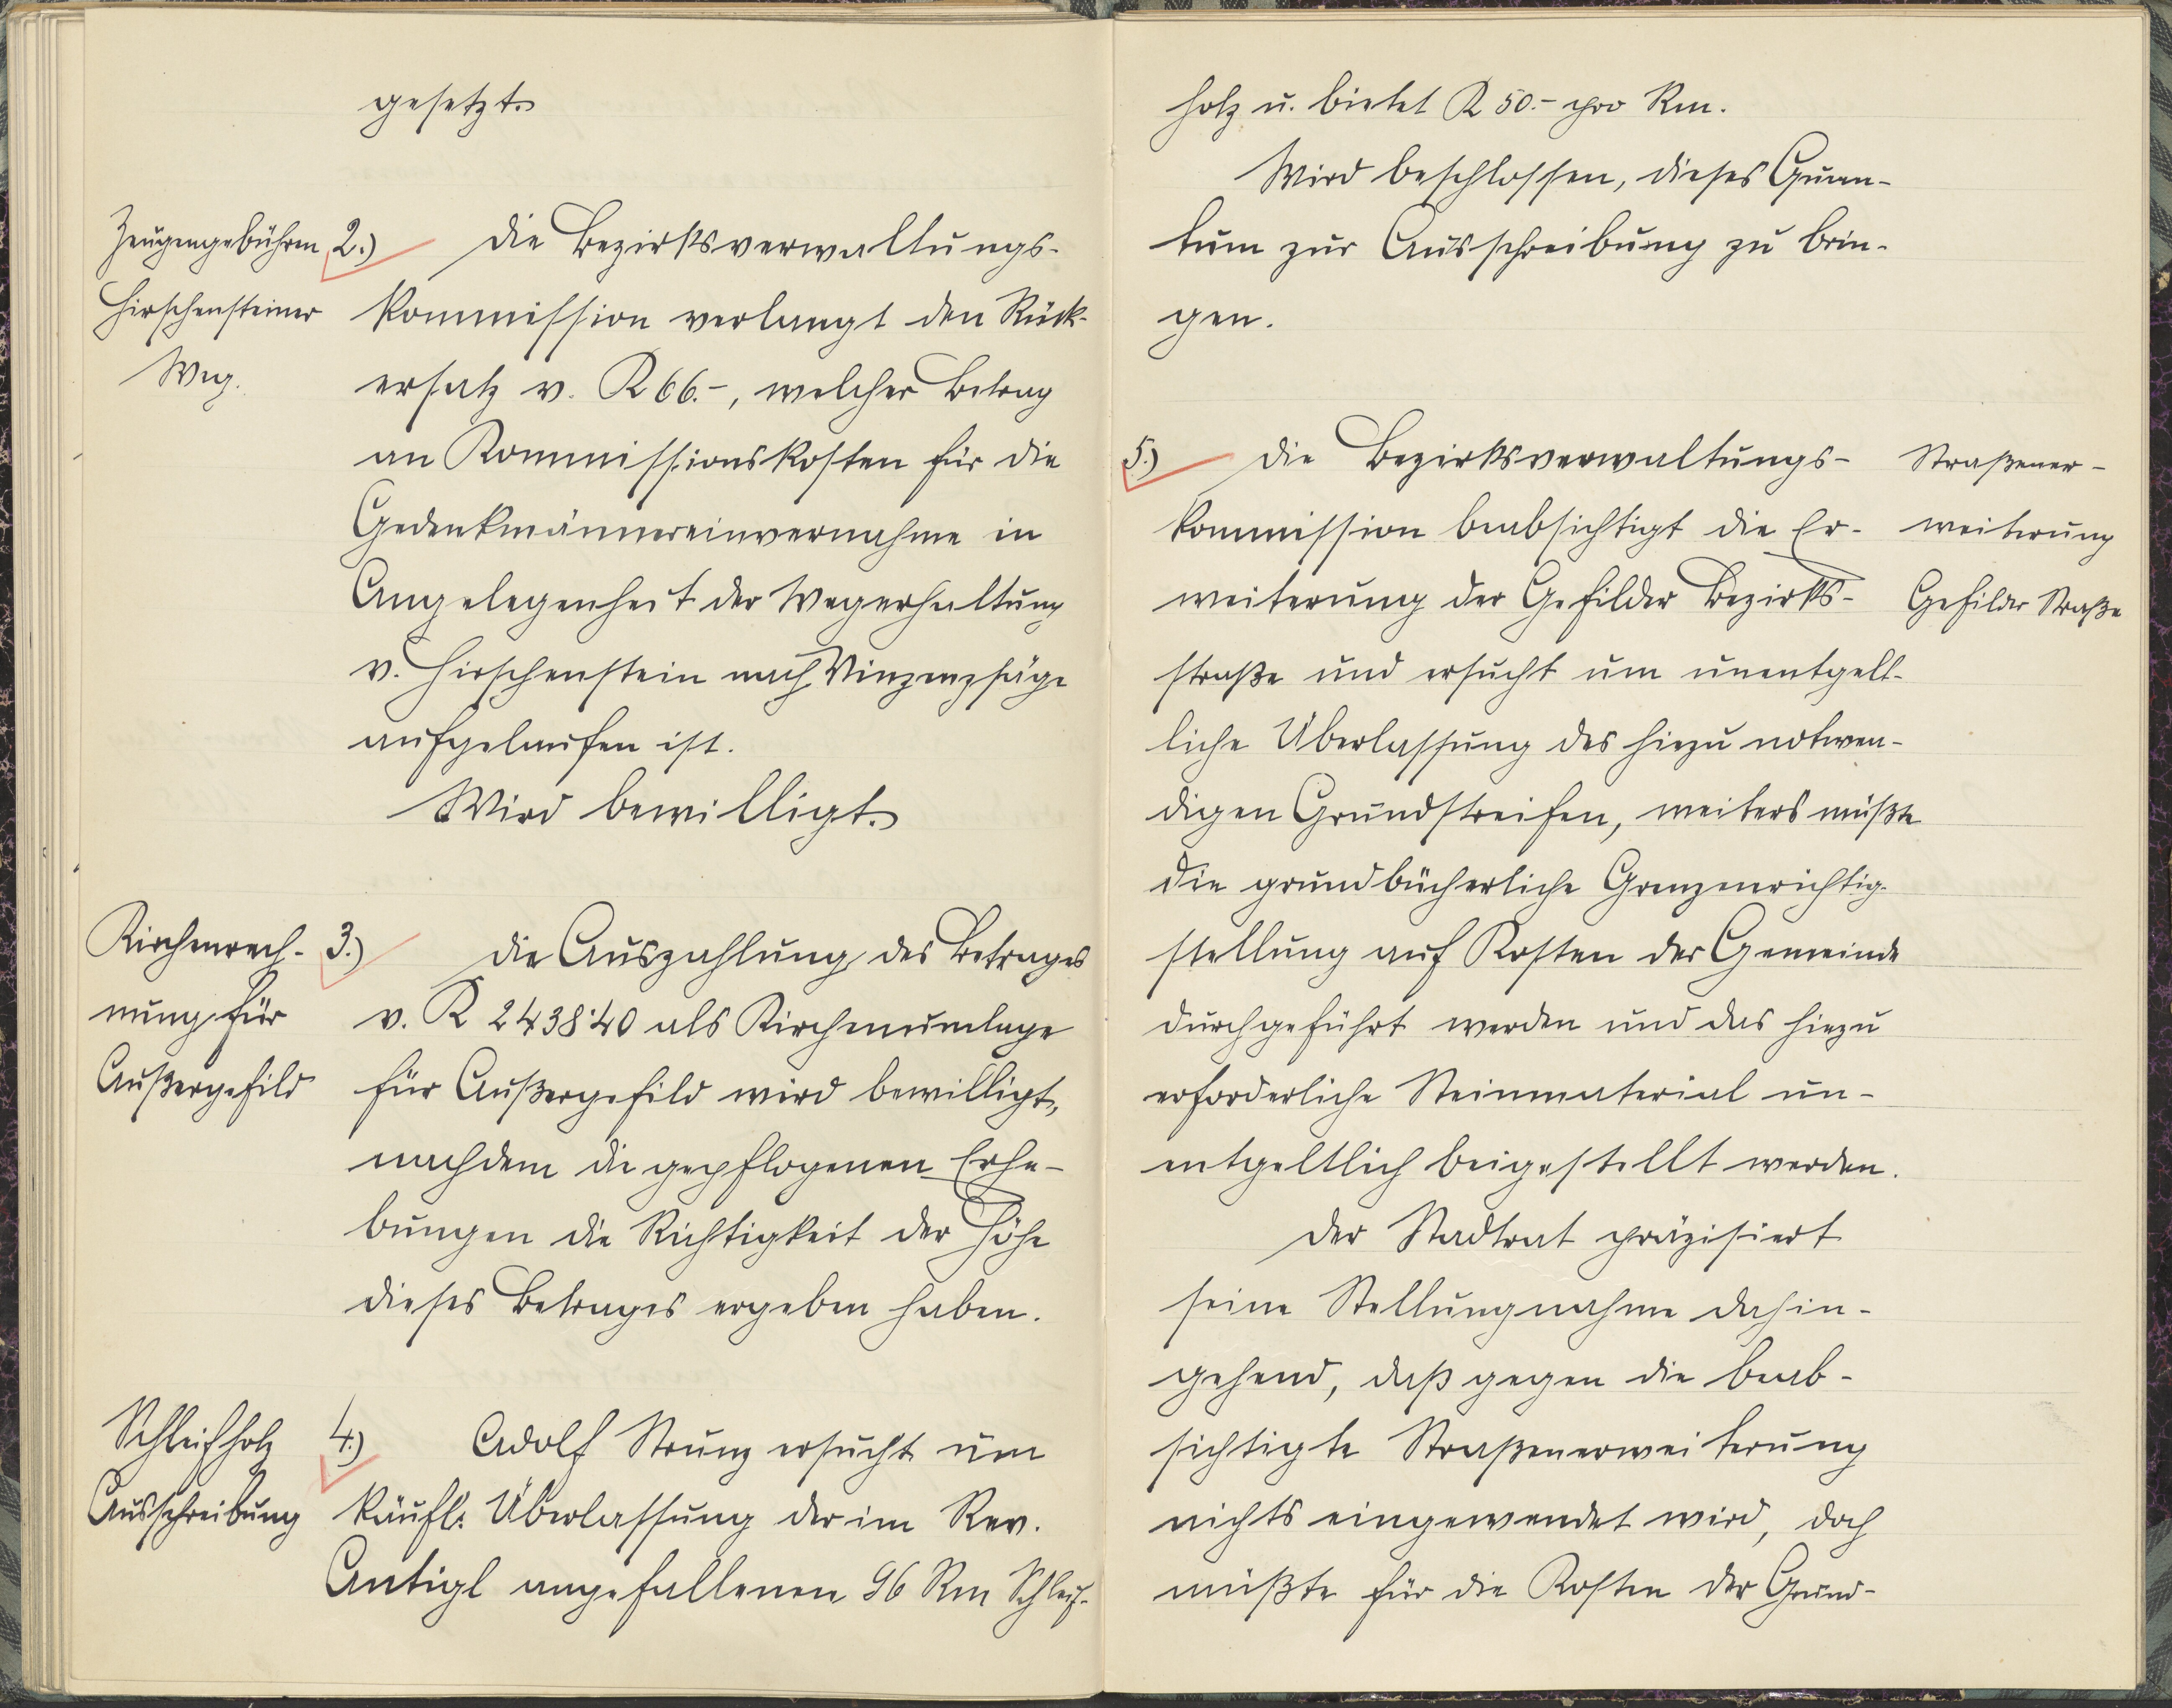 gesetzt.
Zeugengebühren
Hirschensteiner
Weg.
2.) Die Bezirksverwaltungs-
kommission verlangt den Rück-
ersatz v. K 66.-, welcher Betrag
an Kommissionskosten für die
Gedenkmännereinvernahme in
Angelegenheit der Wegerhaltung
v. Hirschenstein nach Vinzenzsäge
aufgelaufen ist.
Wird bewilligt.
Kirchenrech-
nung für
Außergefild
3.) Die Auszahlung des Betrages
v. K 2438·40 als Kirchenumlage
für Außergefild wird bewilligt,
nachdem die gepflogenen Erhe-
bungen die Richtigkeit der Höhe
dieses Betrages ergeben haben.
Schleifholz
Ausschreibung
4.) Adolf Strunz ersucht um
käufl. Überlassung der im Rev.
Antigl angefallenen 96 Rm Schleif-
holz u. bietet K 50.- pro Rm.
Wird beschlossen, dieses Quan-
tum zur Ausschreibung zu brin-
gen.
5.) Die Bezirksverwaltungs-
kommission beabsichtigt die Er-
weiterung der Gefilder Bezirks-
straße und ersucht um unentgelt-
liche Überlassung des hiezu notwen-
digen Grundstreifen, weiters müßte
die grundbücherliche Grenzenrichtig-
stellung auf Kosten der Gemeinde
durchgeführt werden und das hiezu
erforderliche Steinmaterial un-
entgeltlich beigestellt werden.
Der Stadtrat präzisiert
seine Stellungnahme dahin-
gehend, daß gegen die beab-
sichtigte Straßenerweiterung
nichts eingewendet wird, doch
müßte für die Kosten der Grund-
Straßener-
weiterung
Gefilder Straße